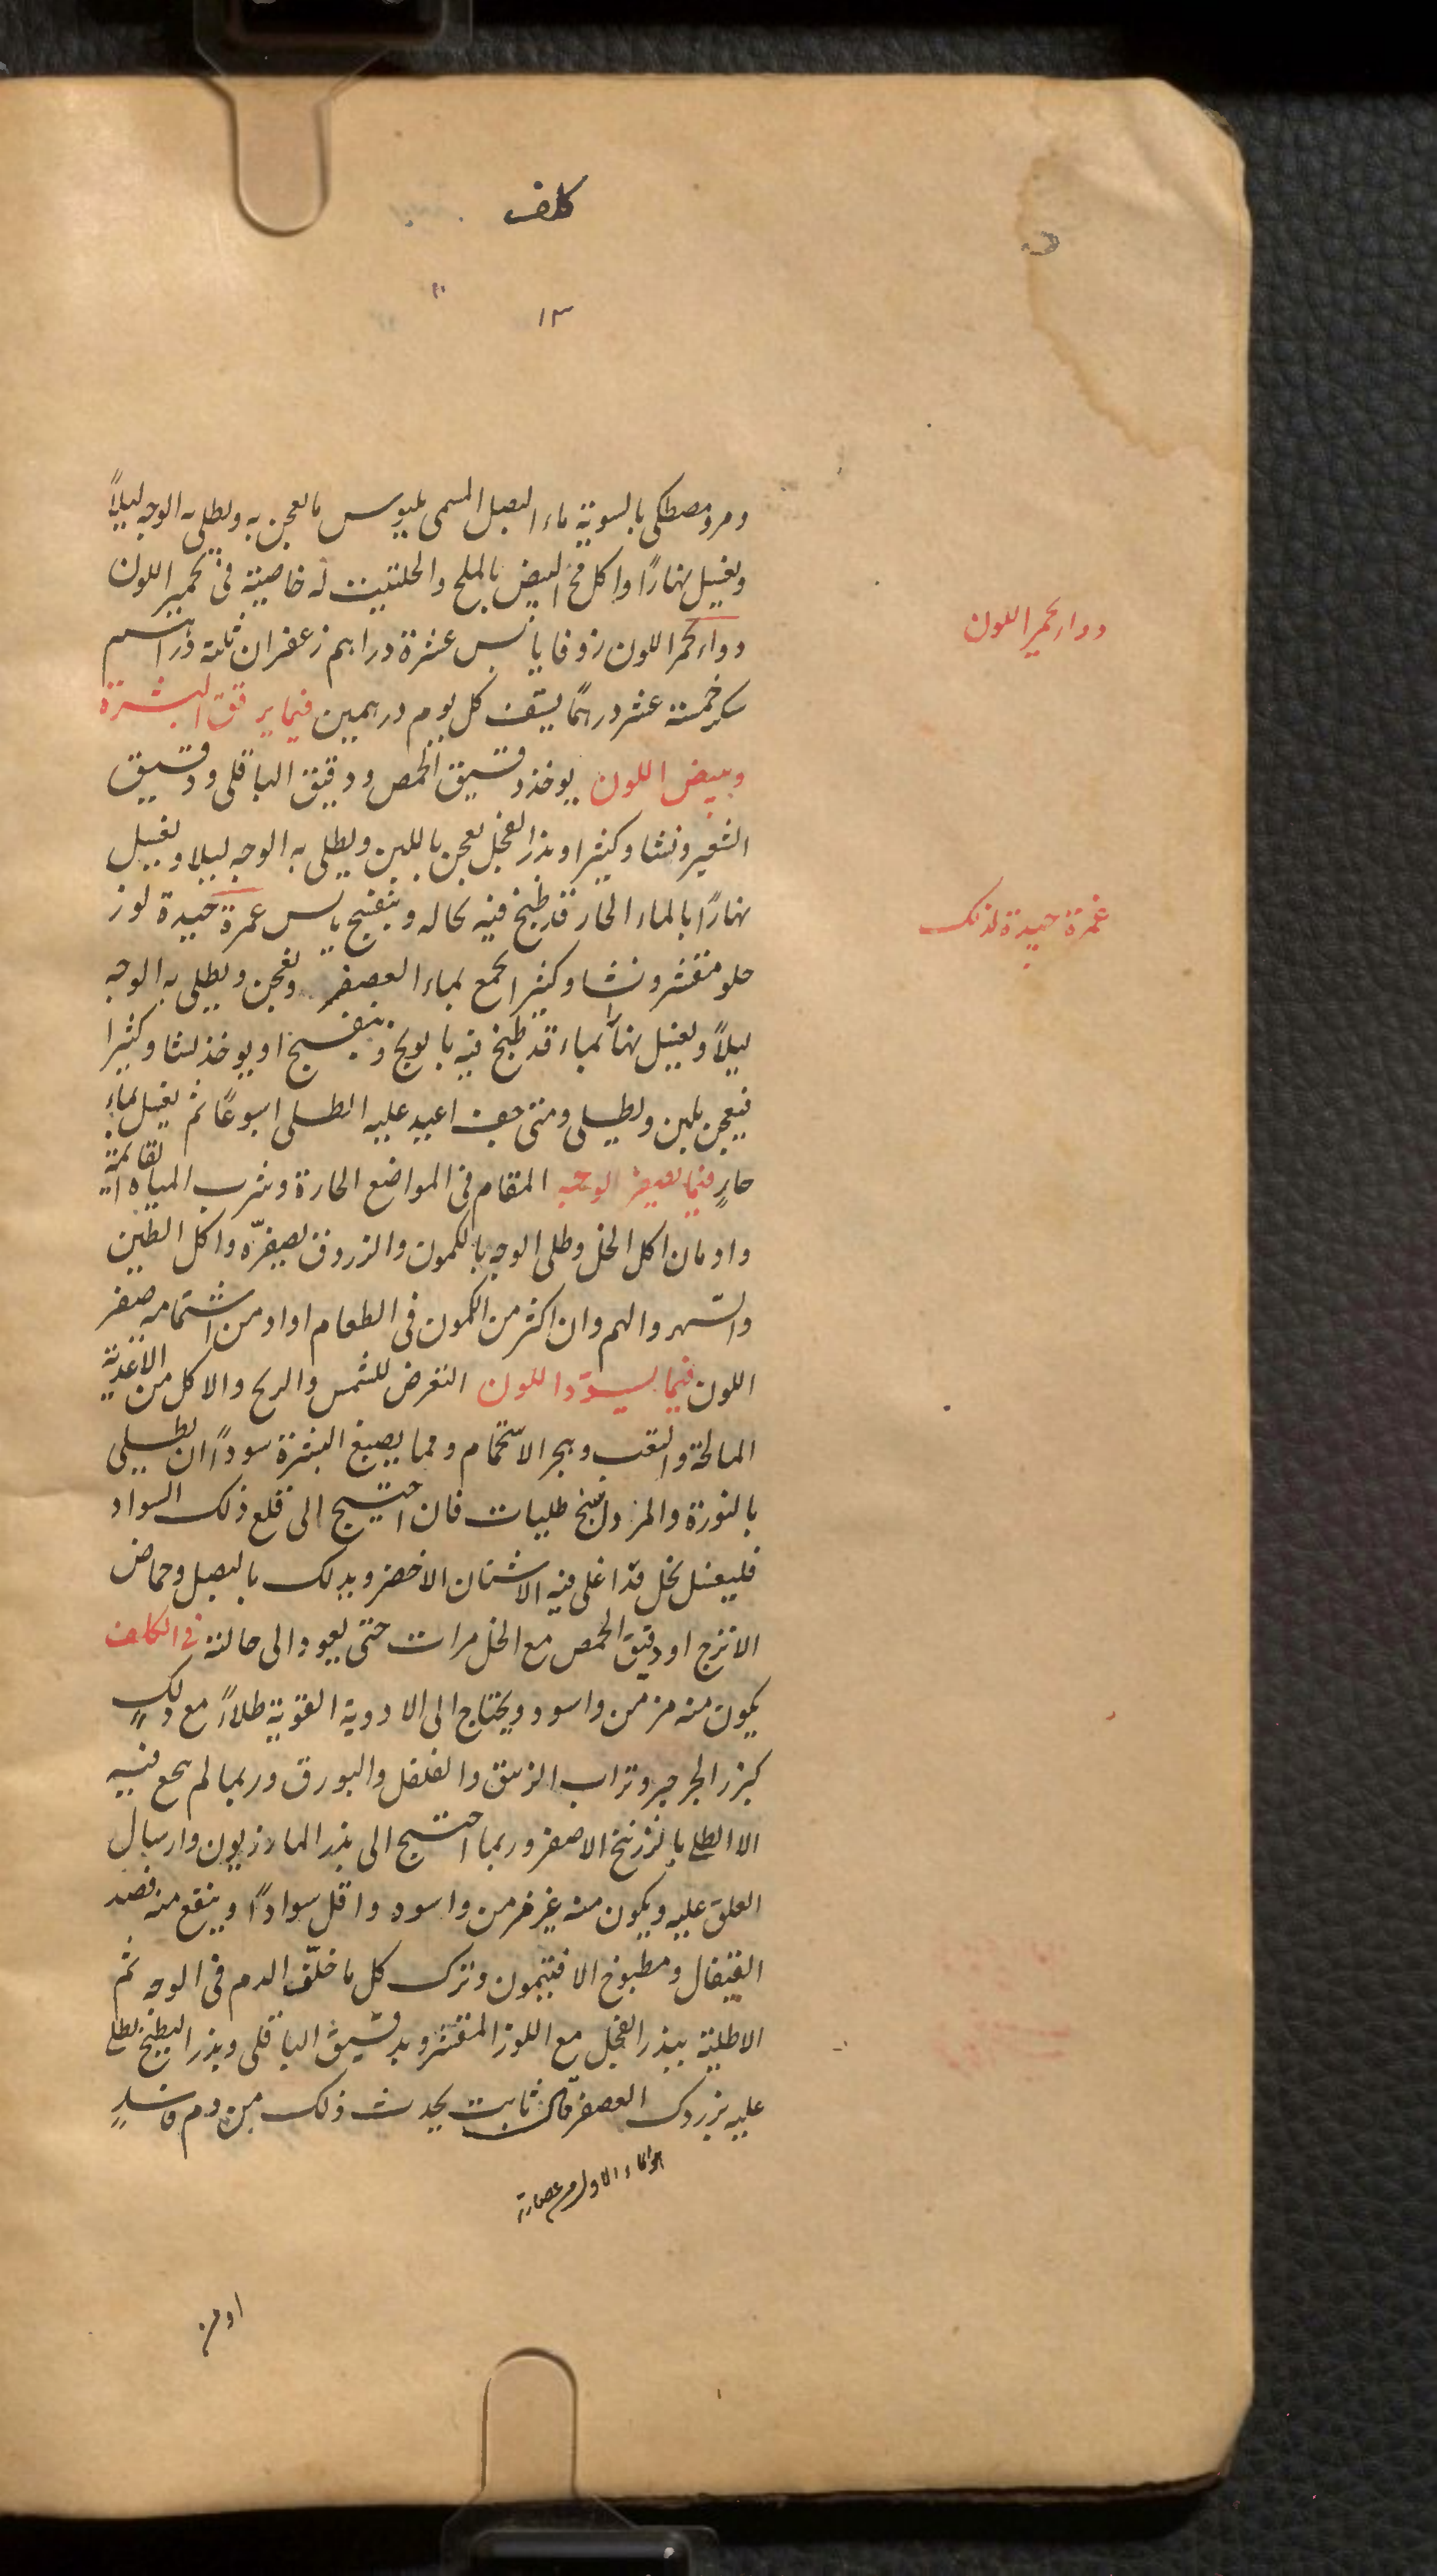 كلف
١٣
ومر ومصطكى بالسوية ماء البصل المسمى بلبوس ما يعجن به ويطلى به الوجه ليلاً
ويغسل نهارًا واكل مح البيض بالملح والحلتيت له خاصية فى تحمير اللون
دواء يحمر اللون زوفا يابس عشرة دراهم زعفران ثلثة دراهم
سكر خمسة عشر درهمًا يستف كل يوم درهمين فيما يرقق البشرة
ويبيض اللون يوخذ دقيق الحمص ودقيق الباقلى ودقيق
الشعير ونشا وكثيرا وبذر الفجل يعجن باللبن ويطلى به الوجه ليلا ويغسل
نهارًا بالماء الحار قد طبخ فيه نخاله وبنفسج يابس غمرة جيدة لوز
حلو مقشر ونشا وكثيرا يجمع بماء العصفر ويعجن ويطلى به الوجه
ليلاً ويغسل نهارًا بماء قد طبخ فيه بابونج وبنفسج او يوخذ نشا وكثيرا
فيعجن بلبن ويطلى ومتى جف اعيد عليه الطلى اسبوعًا ثم يغسل بماء
حارٍ فيما يصفر الوجه المقام فى المواضع الحارة وشرب المياه القائمة
وادمان اكل الخل وطلى الوجه بالكمون والزروق يصفرّه واكل الطين
والسهر والهم وان اكثر من الكمون فى الطعام او ادمن اشتمامه صفر
اللون فيما يسوّد اللون التعرض للشمس والريح والاكل من الاغذية
المالحة والتعب وهجر الاستحمام ومما يصبغ البشرة سوداً ان يطلى
بالنورة والمرداسنج طليات فان احتيج الى قلع ذلك السواد
فليغسل بخل قد اغلى فيه الاشنان الاخضر ويدلك بالبصل وحماض
الاترج او دقيق الحمص مع الخل مرات حتى يعود الى حالته فى الكلف
يكون منه مزمن واسود ويحتاج الى الادوية القوية طلاءً مع دلكٍ
كبزر الجرجير وتراب الزيبق والفلفل والبورق وربما لم ينجع فيه
الا الطلى بالزرنيخ الاصفر وربما احتيج الى بذر الماذريون وارسال
العلق عليه ويكون منه غير مزمن واسود واقل سوادًا وينفع منه فصد
القيفال ومطبوخ الافتيمون وترك كل ما خلّف الدم فى الوجه ثم
الاطلية ببذر الفجل مع اللوز المقشر وبدقيق الباقلى وبذر البطيخ يطلى
عليه بزردك العصفر ثابت يحدث ذلك من دم فاسدٍ
او من
دواء يحمر اللون
غمرة جيدة لذلك